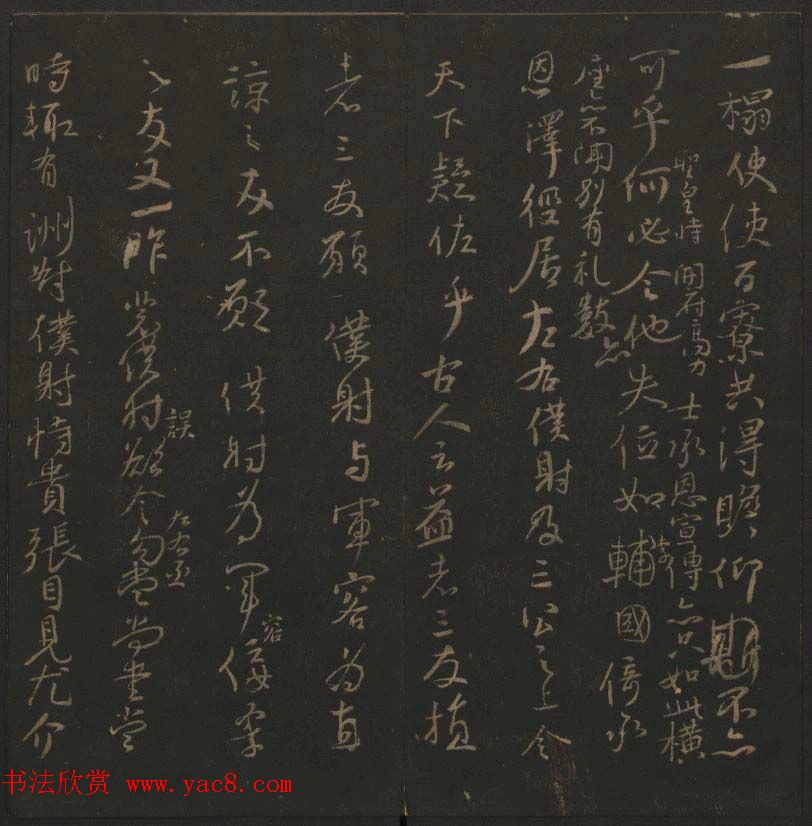 一榻使使百寮共得瞻仰不亦
聖皇時開府高力士承恩宣傳亦只如此橫
可乎何必令他失位如李輔國倚承
座亦不聞別有礼數亦
恩澤徑居左右僕射及三公之上令
天下疑怪乎古人云益者三友損
者三友願僕射与軍容為直
諒之友不願僕射為軍容佞柔
之友又一昨裴僕射誤欲令左右丞勾當尚書當
時輒有酬對僕射恃貴張目見尤介
书法欣赏 www.yac8.com